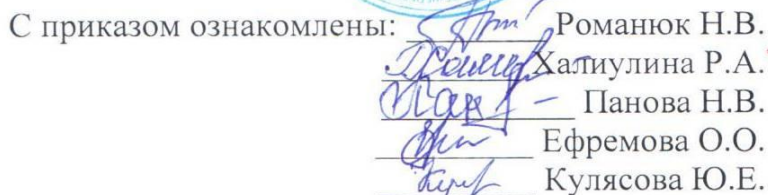 С приказом ознакомлены: Романюк Н.В.
Халиулина Р.А.
Панова Н.В.
Ефремова О.О.
Кулясова Ю.Е.